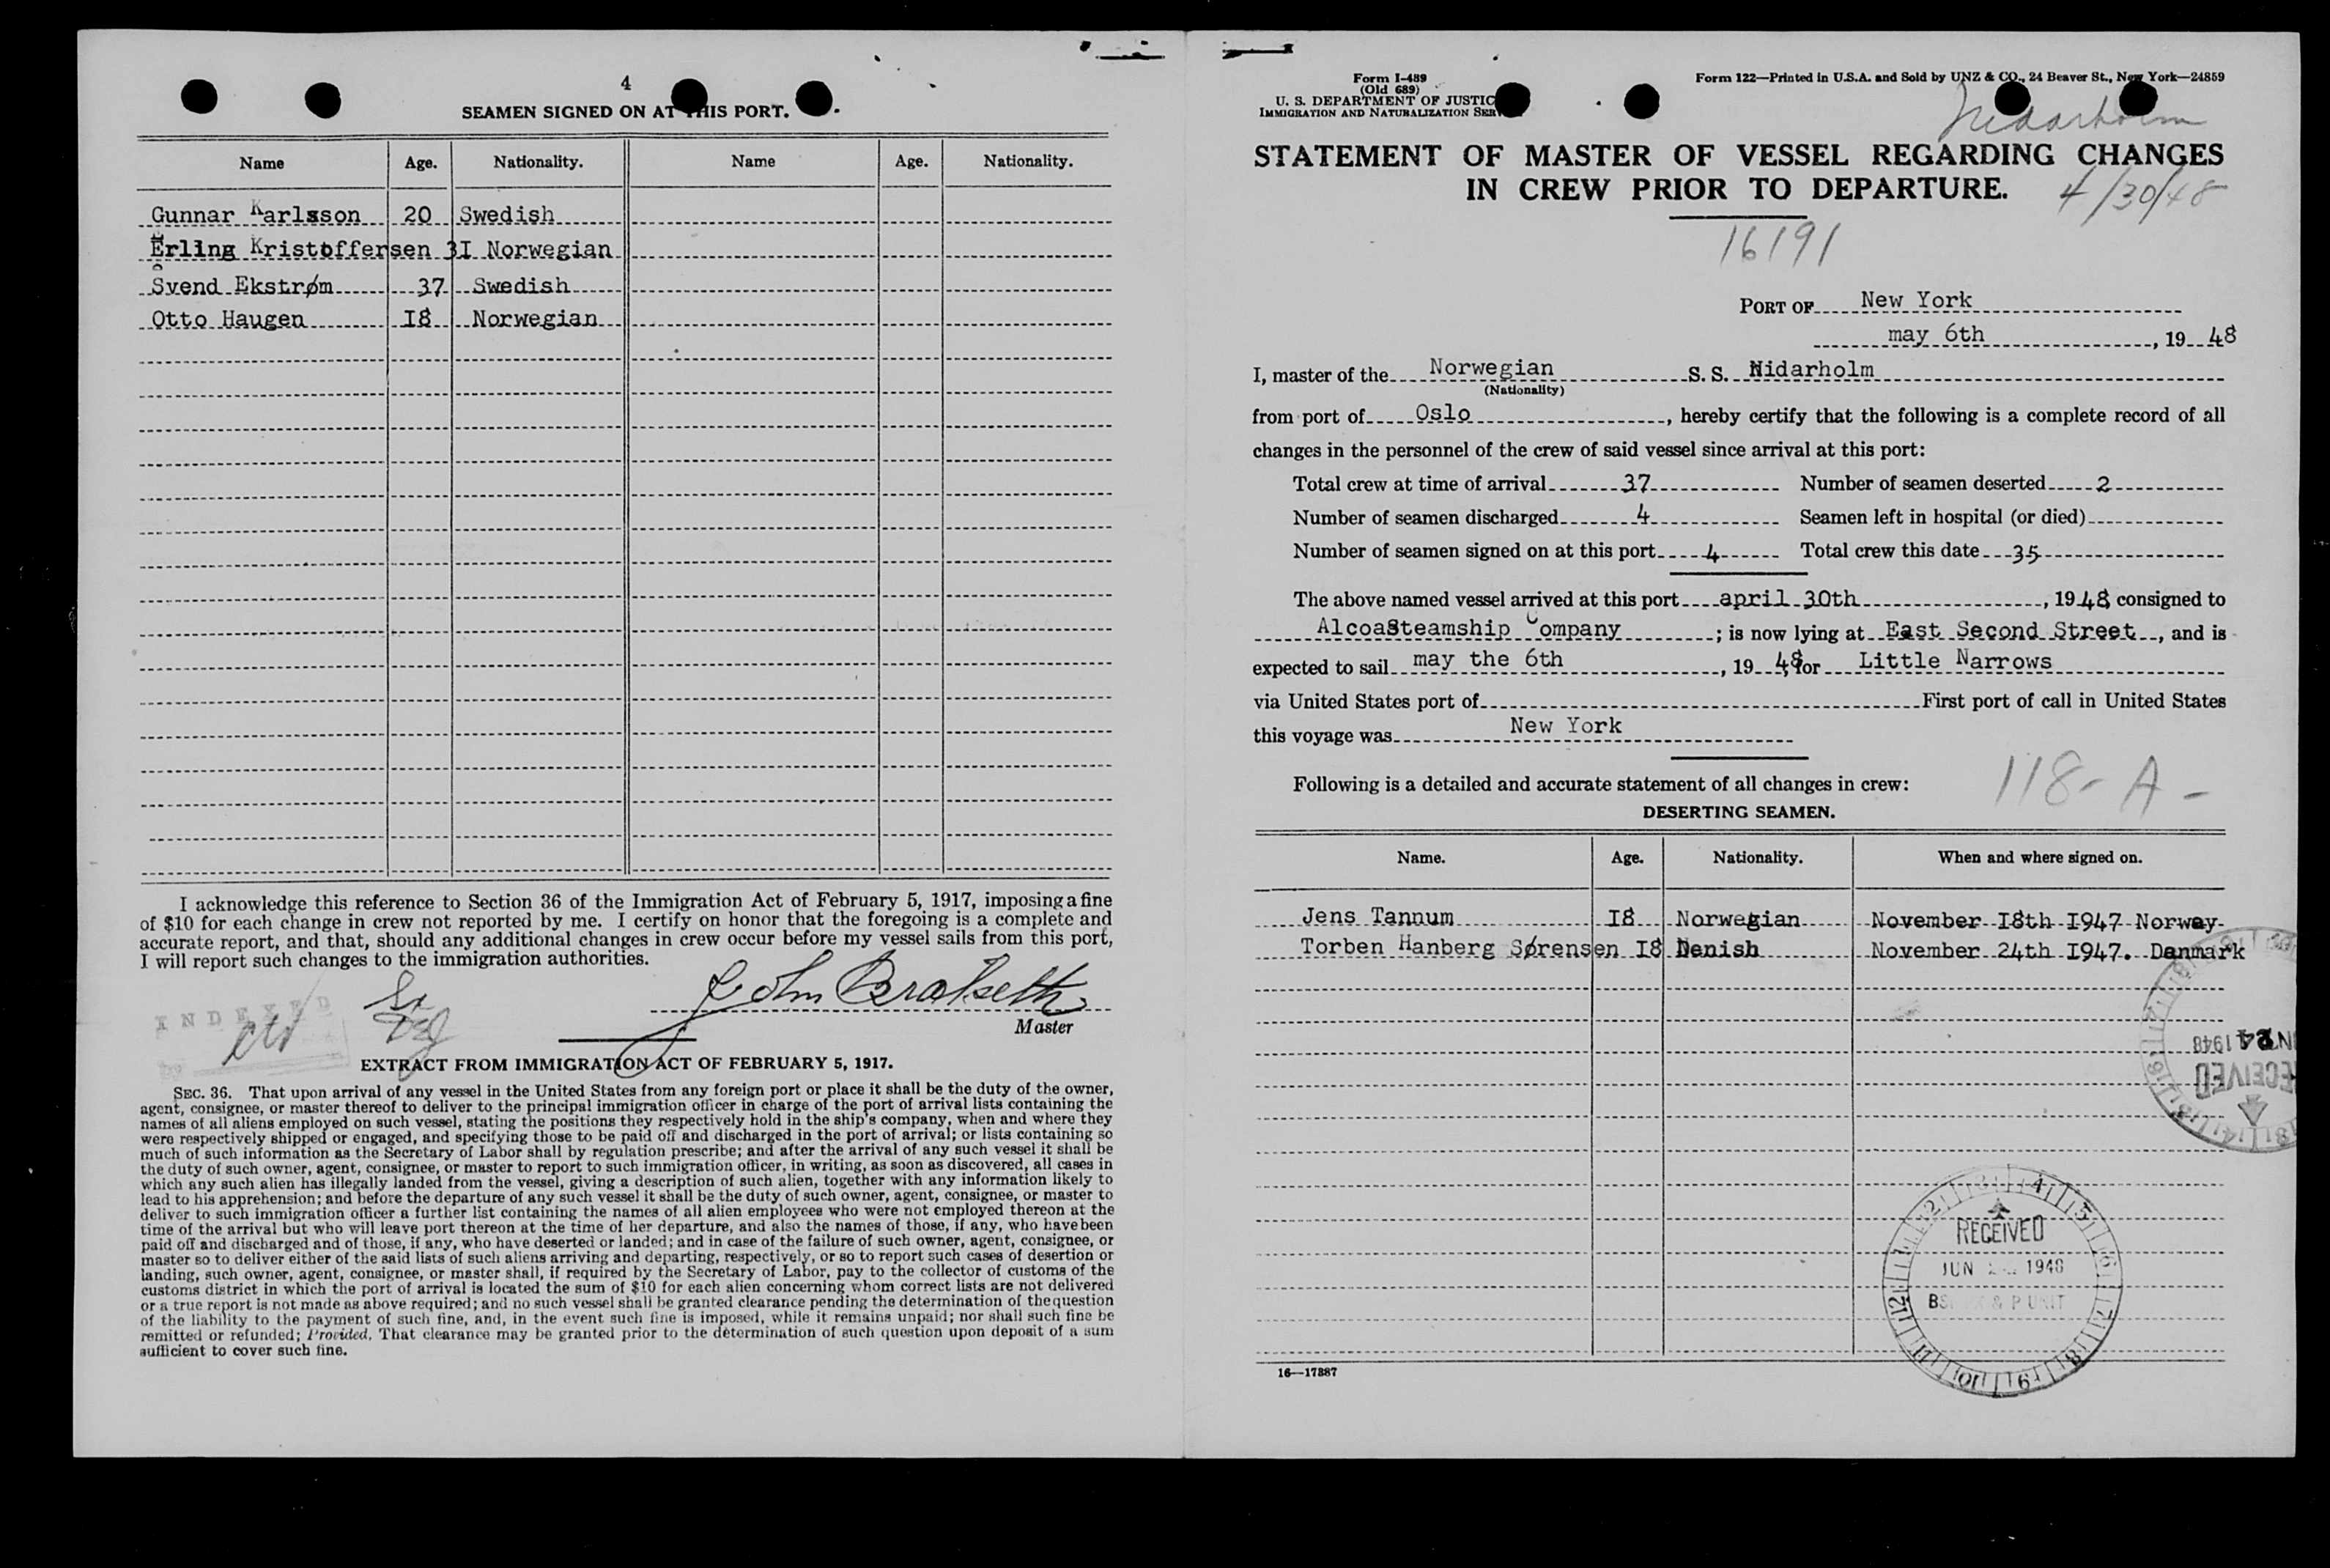 4
SEAMEN SIGNED ON AT THIS PORT.
Name Age. Nationality. Name Age. Nationality.
Gunnar Karlsson 20 Swedish
Erling Kristoffersen 3I Norwegian
Svend Ekstrøm 37 Swedish
Otto Haugen I8 Norwegian
I acknowledge this reference to Section 36 of the Immigration Act of February 5, 1917, imposing a fine
of $10 for each change in crew not reported by me. I certify on honor that the foregoing is a complete and
accurate report, and that, should any additional changes in crew occur before my vessel sails from this port,
I will report such changes to the immigration authorities.
INDEXED
John Brakseth
Master
EXTRACT FROM IMMIGRATION ACT OF FEBRUARY 5, 1917.
SEC. 36. That upon arrival of any vessel in the United States from any foreign port or place it shall be the duty of the owner,
agent, consignee, or master thereof to deliver to the principal immigration officer in charge of the port of arrival lists containing the
names of all aliens employed on such vessel, stating the positions they respectively hold in the ship's company, when and where they
were respectively shipped or engaged, and specifying those to be paid off and discharged in the port of arrival; or lists containing so
much of such information as the Secretary of Labor shall by regulation prescribe; and after the arrival of any such vessel it shall be
the duty of such owner, agent, consignee, or master to report to such immigration officer, in writing, as soon as discovered, all cases in
which any such alien has illegally landed from the vessel, giving a description of such alien, together with any information likely to
lead to his apprehension; and before the departure of any such vessel it shall be the duty of such owner, agent, consignee, or master to
deliver to such immigration officer a further list containing the names of all alien employees who were not employed thereon at the
time of the arrival but who will leave port thereon at the time of her departure, and also the names of those, if any, who have been
paid off and discharged and of those, if any, who have deserted or landed; and in case of the failure of such owner, agent, consignee, or
master so to deliver either of the said lists of such aliens arriving and departing, respectively, or so to report such cases of desertion or
landing, such owner, agent, consignee, or master shall, if required by the Secretary of Labor, pay to the collector of customs of the
customs district in which the port of arrival is located the sum of $10 for each alien concerning whom correct lists are not delivered
or a true report is not made as above required; and no such vessel shall be granted clearance pending the determination of the question
of the liability to the payment of such fine, and, in the event such fine is imposed, while it remains unpaid; nor shall such fine be
remitted or refunded; Provided, That clearance may be granted prior to the determination of such question upon deposit of a sum
sufficient to cover such fine.
Form I-489
(Old 689)
U. S. DEPARTMENT OF JUSTIC
IMMIGRATION AND NATURALIZATION SER
Form 122—Printed in U.S.A. and Sold by UNZ & CO., 24 Beaver St., New York—24859
Nidarholm
STATEMENT OF MASTER OF VESSEL REGARDING CHANGES
IN CREW PRIOR TO DEPARTURE.
4/30/48
16191
PORT OF New York
may 6th, 19 48
I, master of the Norwegian S. S. Nidarholm
(Nationality)
from port of Oslo, hereby certify that the following is a complete record of all
changes in the personnel of the crew of said vessel since arrival at this port:
Total crew at time of arrival 37 Number of seamen deserted 2
Number of seamen discharged 4 Seamen left in hospital (or died)
Number of seamen signed on at this port 4 Total crew this date 35
The above named vessel arrived at this port april 30th, 19 48, consigned to
AlcoaSteamship Company; is now lying at East Second Street, and is
expected to sail may the 6th, 19 48, for Little Narrows
via United States port of First port of call in United States
this voyage was New York
Following is a detailed and accurate statement of all changes in crew:
118-A-
DESERTING SEAMEN.
Name. Age. Nationality. When and where signed on.
Jens Tannum I8 Norwegian November I8th I947 Norway
Torben Hanberg Sørensen I8 Denish November 24th I947. Danmark
24 1948
RECEIVED
RECEIVED
JUN 1948
16—17887